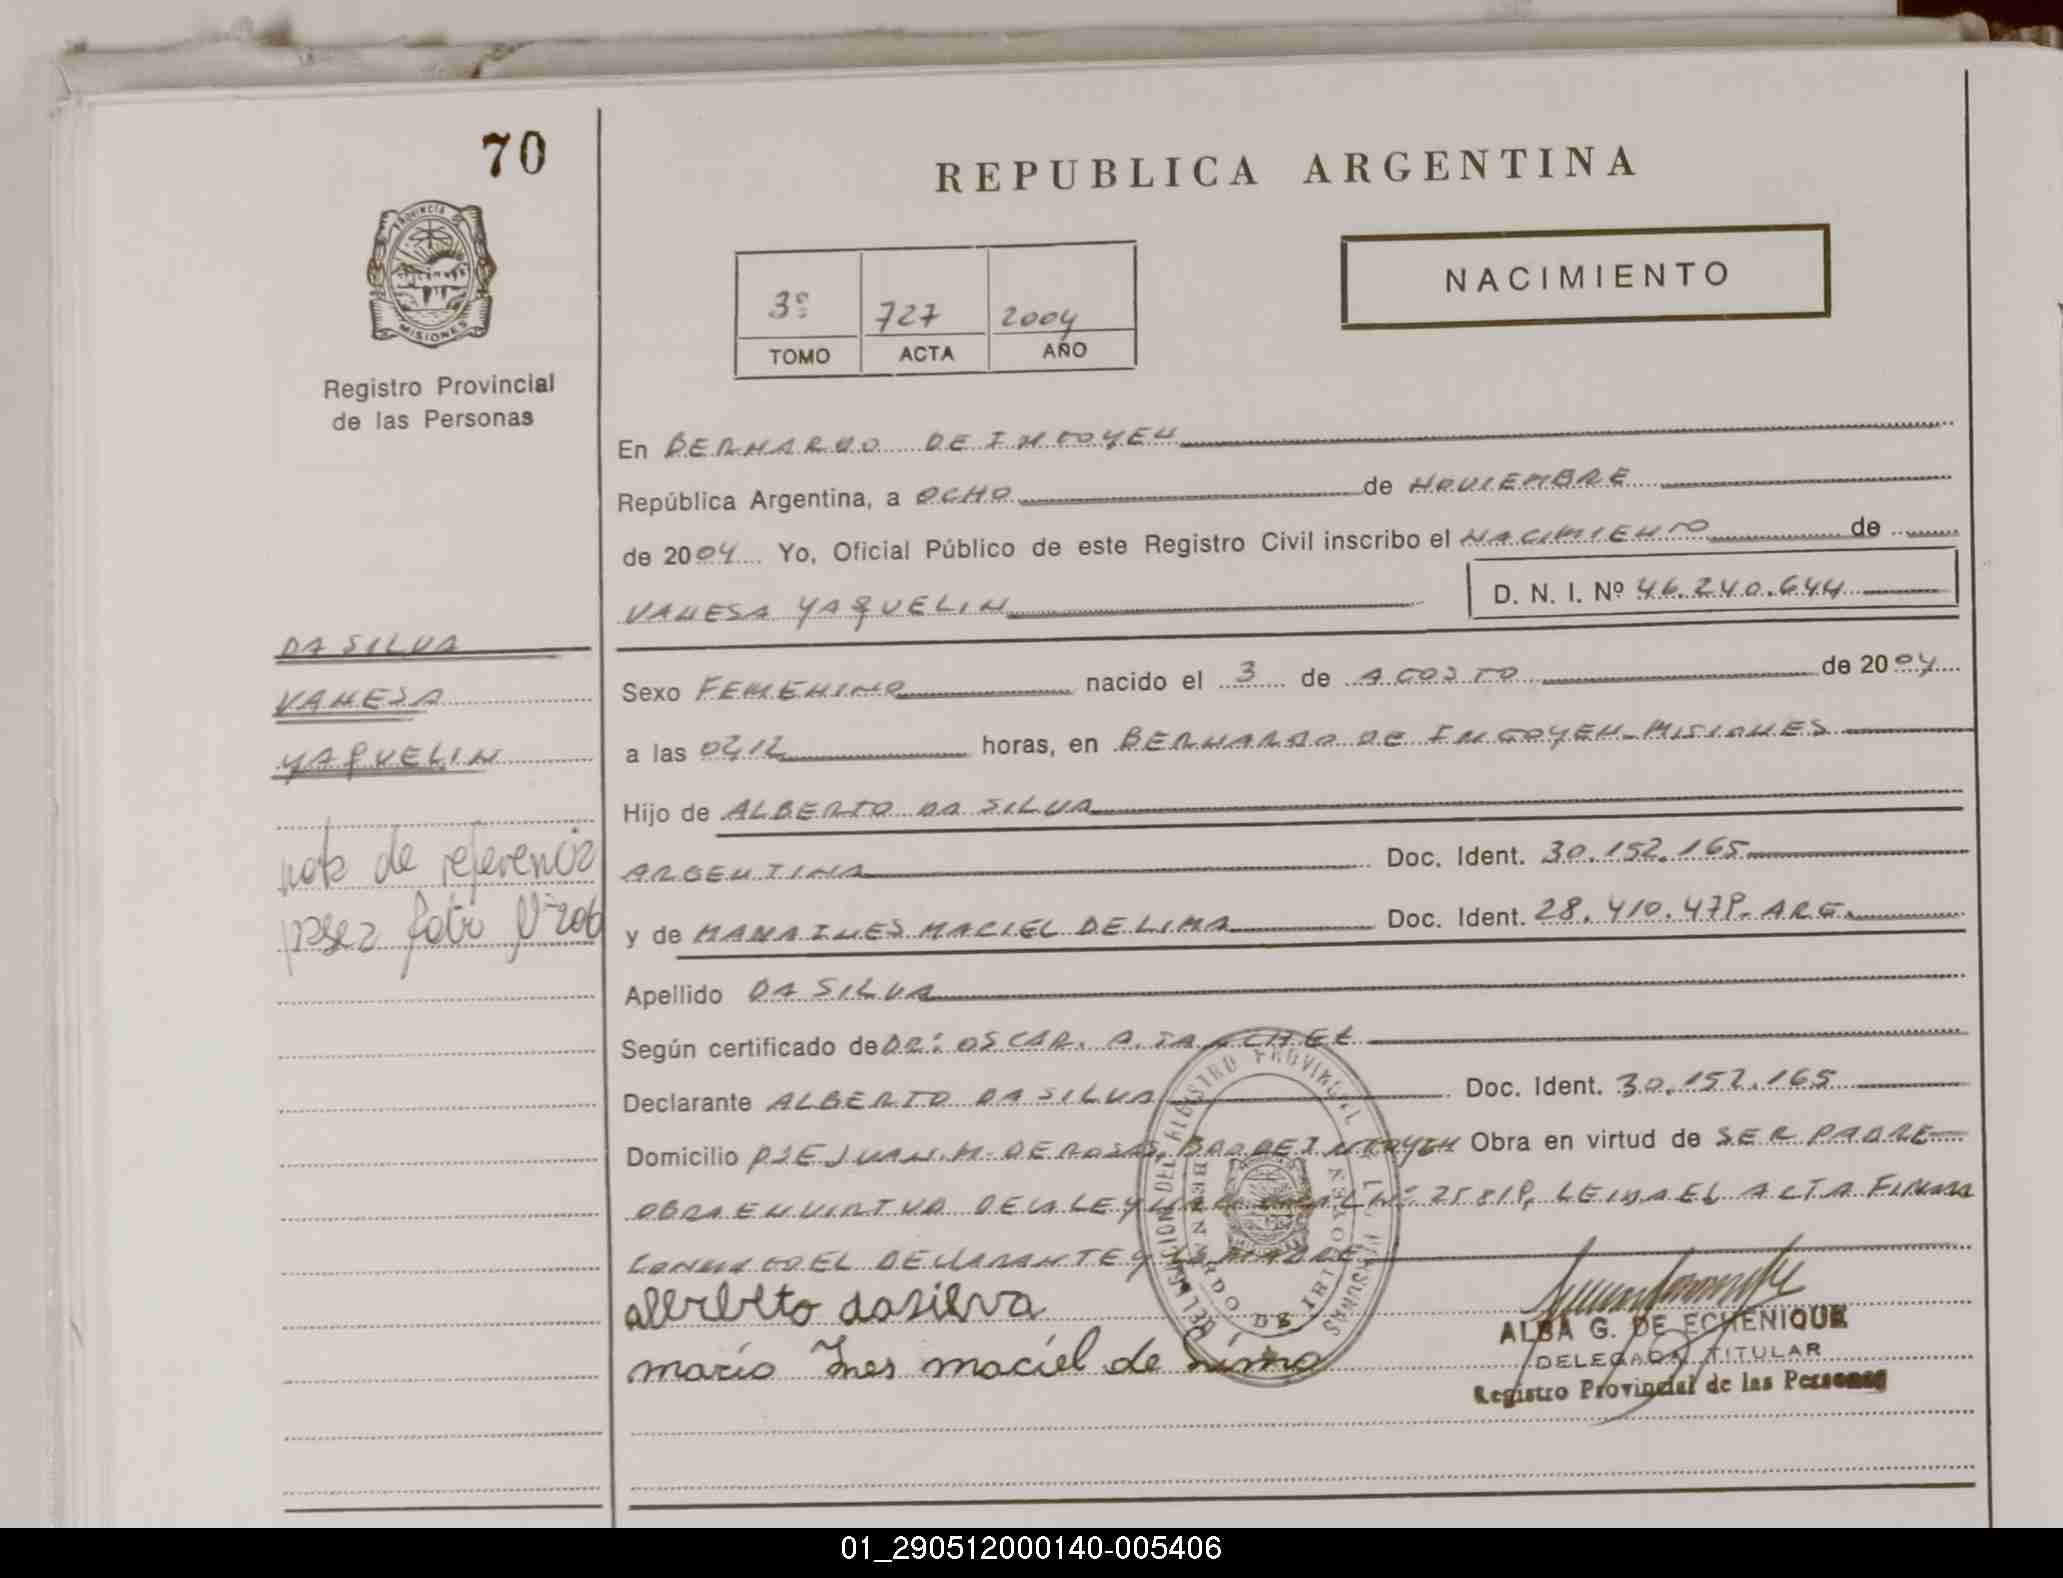 70
REPUBLICA ARGENTINA
PROVINCIA DE
MISIONES
NACIMIENTO
3º 727 2004
TOMO ACTA AÑO
Registro Provincial
de las Personas
En BERNARDO DE IRIGOYEN
República Argentina, a OCHO de NOVIEMBRE
de 2004 Yo, Oficial Público de este Registro Civil inscribo el NACIMIENTO de
VANESA YAQUELIN D. N. I. Nº 46.240.644
DA SILVA
VANESA
YAQUELIN
nota de referencia
foto Nº 206
Sexo FEMENINO nacido el 3 de AGOSTO de 2004
a las horas, en BERNARDO DE IRIGOYEN-MISIONES
Hijo de ALBERTO DA SILVA
ARGENTINA Doc. Ident. 30.152.165
y de MARIA INES MACIEL DE LIMA Doc. Ident. 28.410.479- ARG.
Apellido DA SILVA
Según certificado de DR: OSCAR. A.
Declarante ALBERTO DA SILVA Doc. Ident. 30.152.165
Domicilio JUAN. M. DE ROSAS, BDO DE IRIGOYEN Obra en virtud de SER PADRE
OBRA EN VIRTUD DE LA LEY NACIONAL Nº 25819, LEIDA EL ACTA FIRMA
CONMIGO EL DECLARANTE Y LA MADRE
DELEGACION DEL REGISTRO PROVINCIAL DE LAS PERSONAS
BERNARDO DE IRIGOYEN
alberto dasilva
maria Ines maciel de Lima
ALBA G. DE ECHENIQUE
DELEGADA TITULAR
Registro Provincial de las Personas
01_290512000140-005406